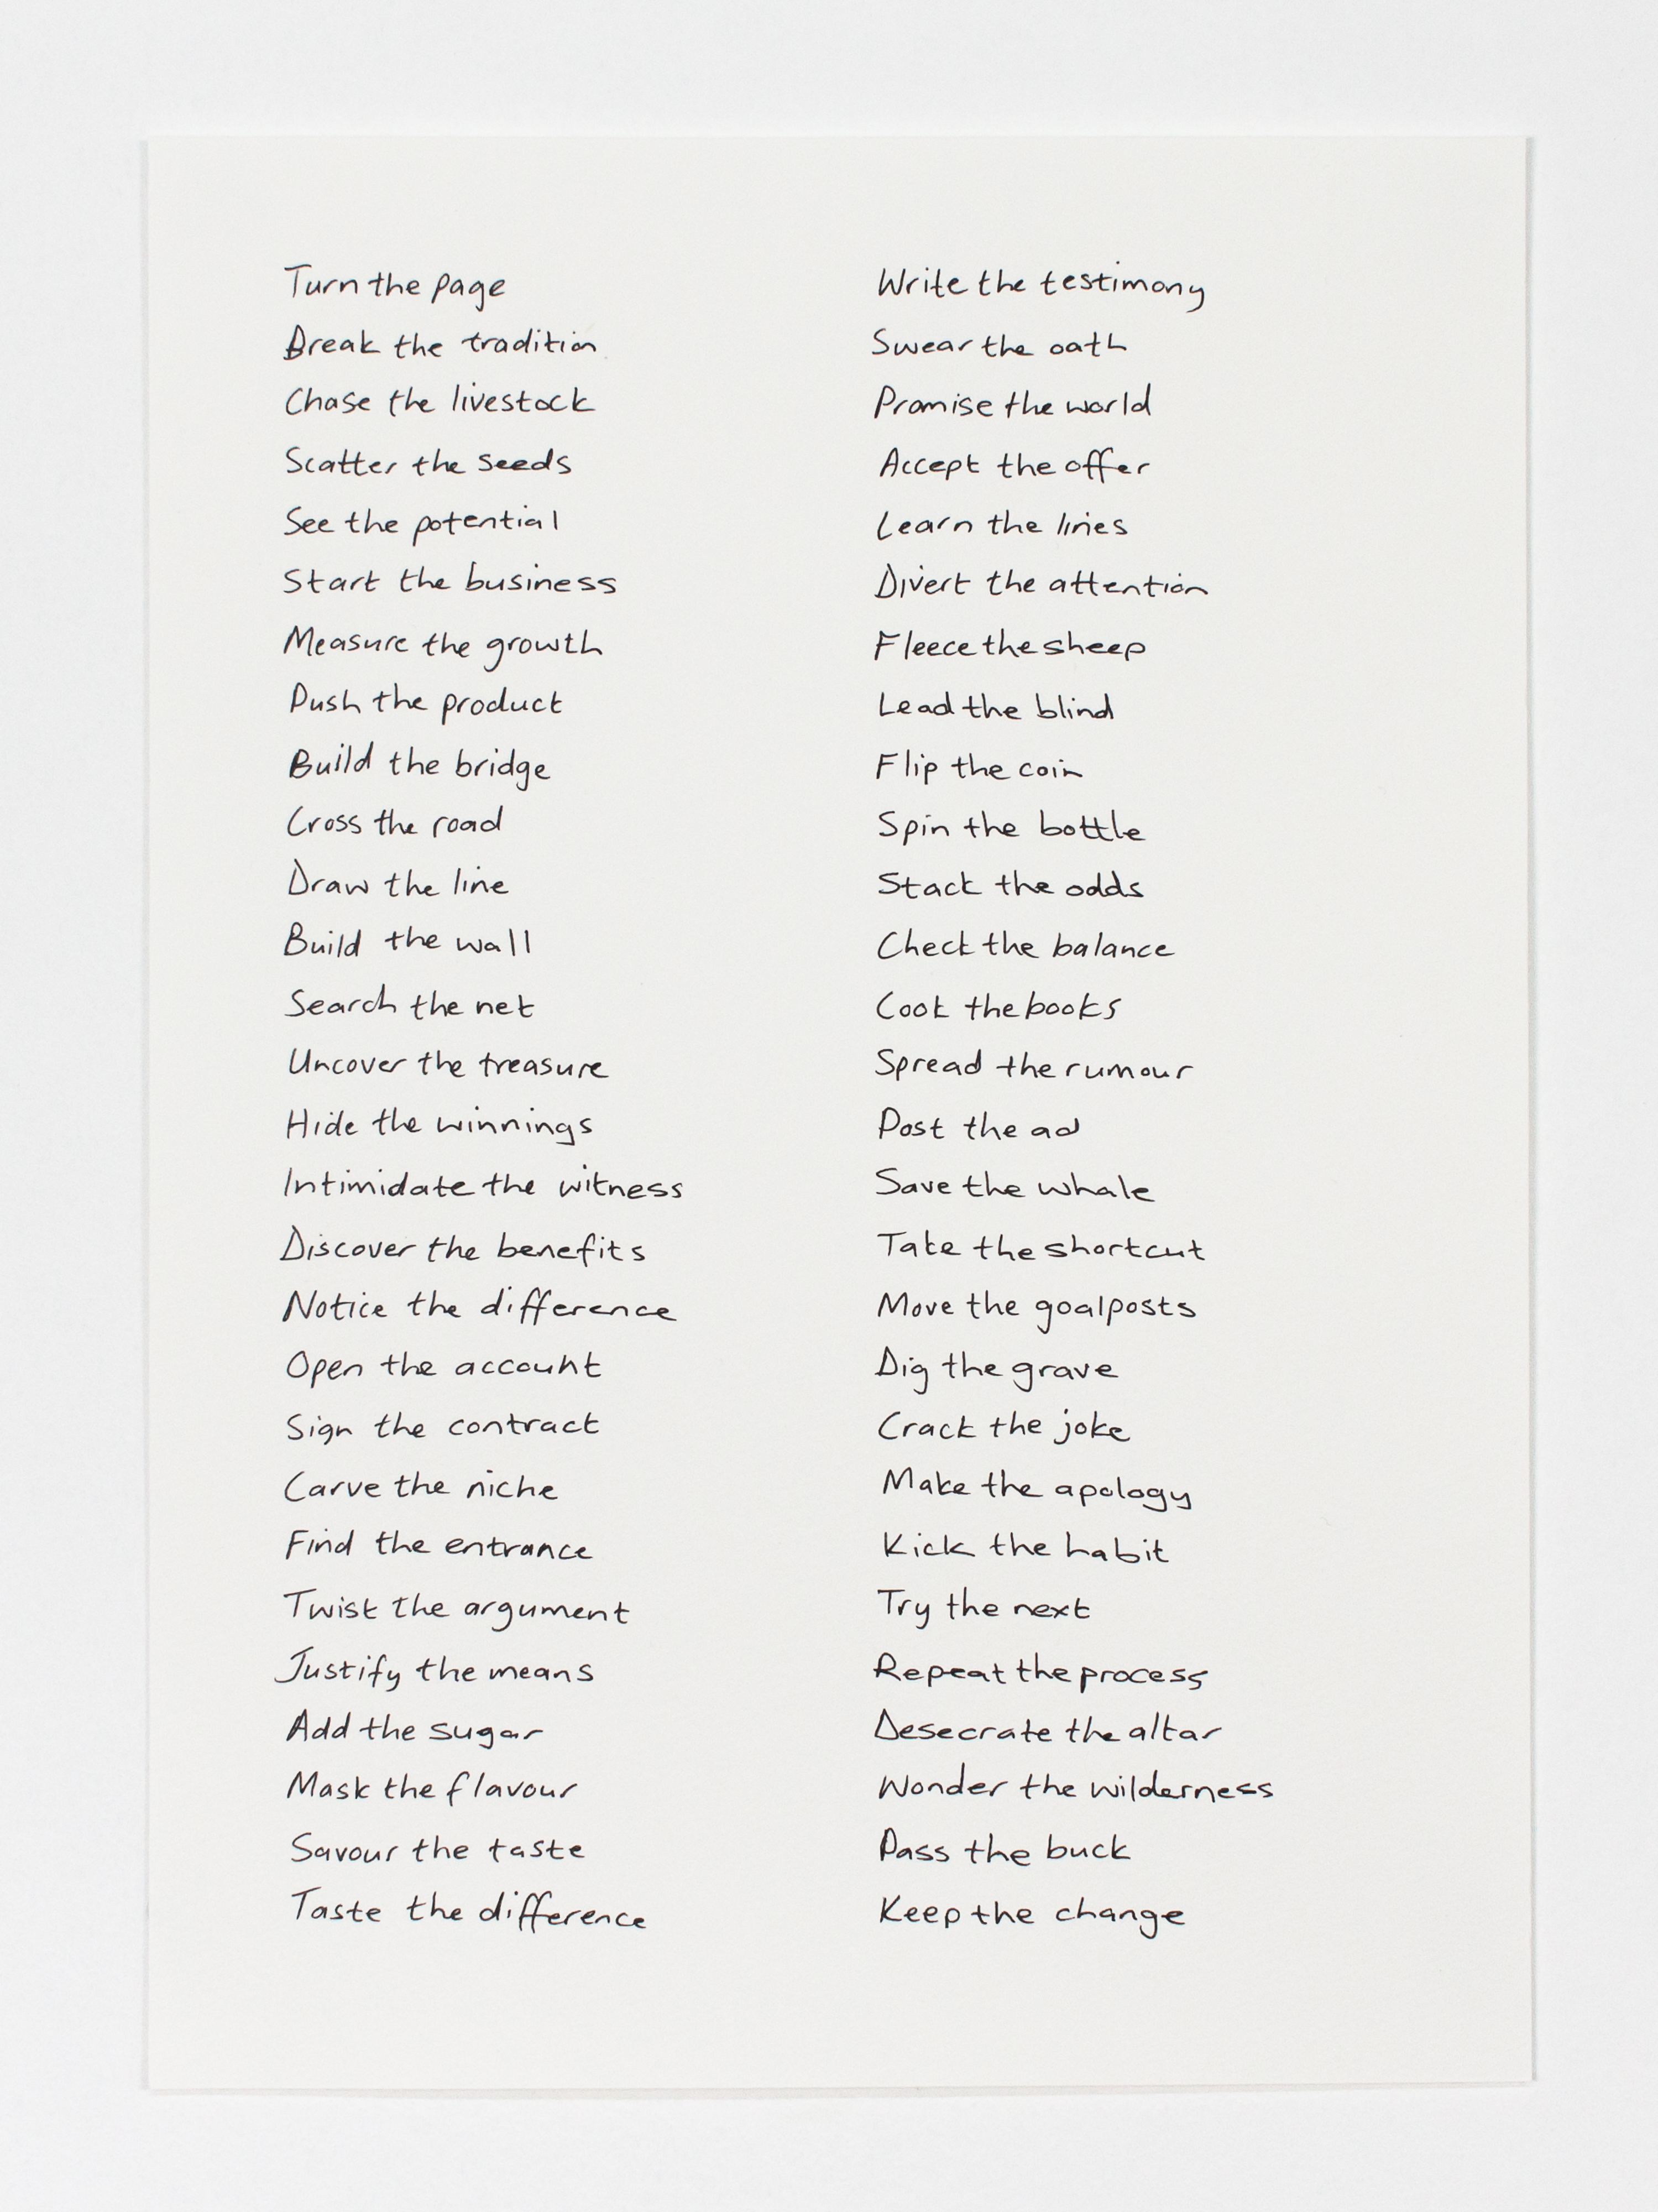 Turn the page
Break the tradition
Chase the livestock
Scatter the seeds
See the potential
Start the business
Measure the growth
Push the product
Build the bridge
Cross the road
Draw the line
Build the wall
Search the net
Uncover the treasure
Hide the winnings
Intimidate the witness
Discover the benefits
Notice the difference
Open the account
Sign the contract
Carve the niche
Find the entrance
Twist the argument
Justify the means
Add the sugar
Mask the flavour
Savour the taste
Taste the difference
Write the testimony
Swear the oath
Promise the world
Accept the offer
Learn the lines
Divert the attention
Fleece the sheep
Lead the blind
Flip the coin
Spin the bottle
Stack the odds
Check the balance
Cook the books
Spread the rumour
Post the ad
Save the whale
Take the shortcut
Move the goalposts
Dig the grave
Crack the joke
Make the apology
Kick the habit
Try the next
Repeat the process
Desecrate the altar
Wonder the wilderness
Pass the buck
Keep the change